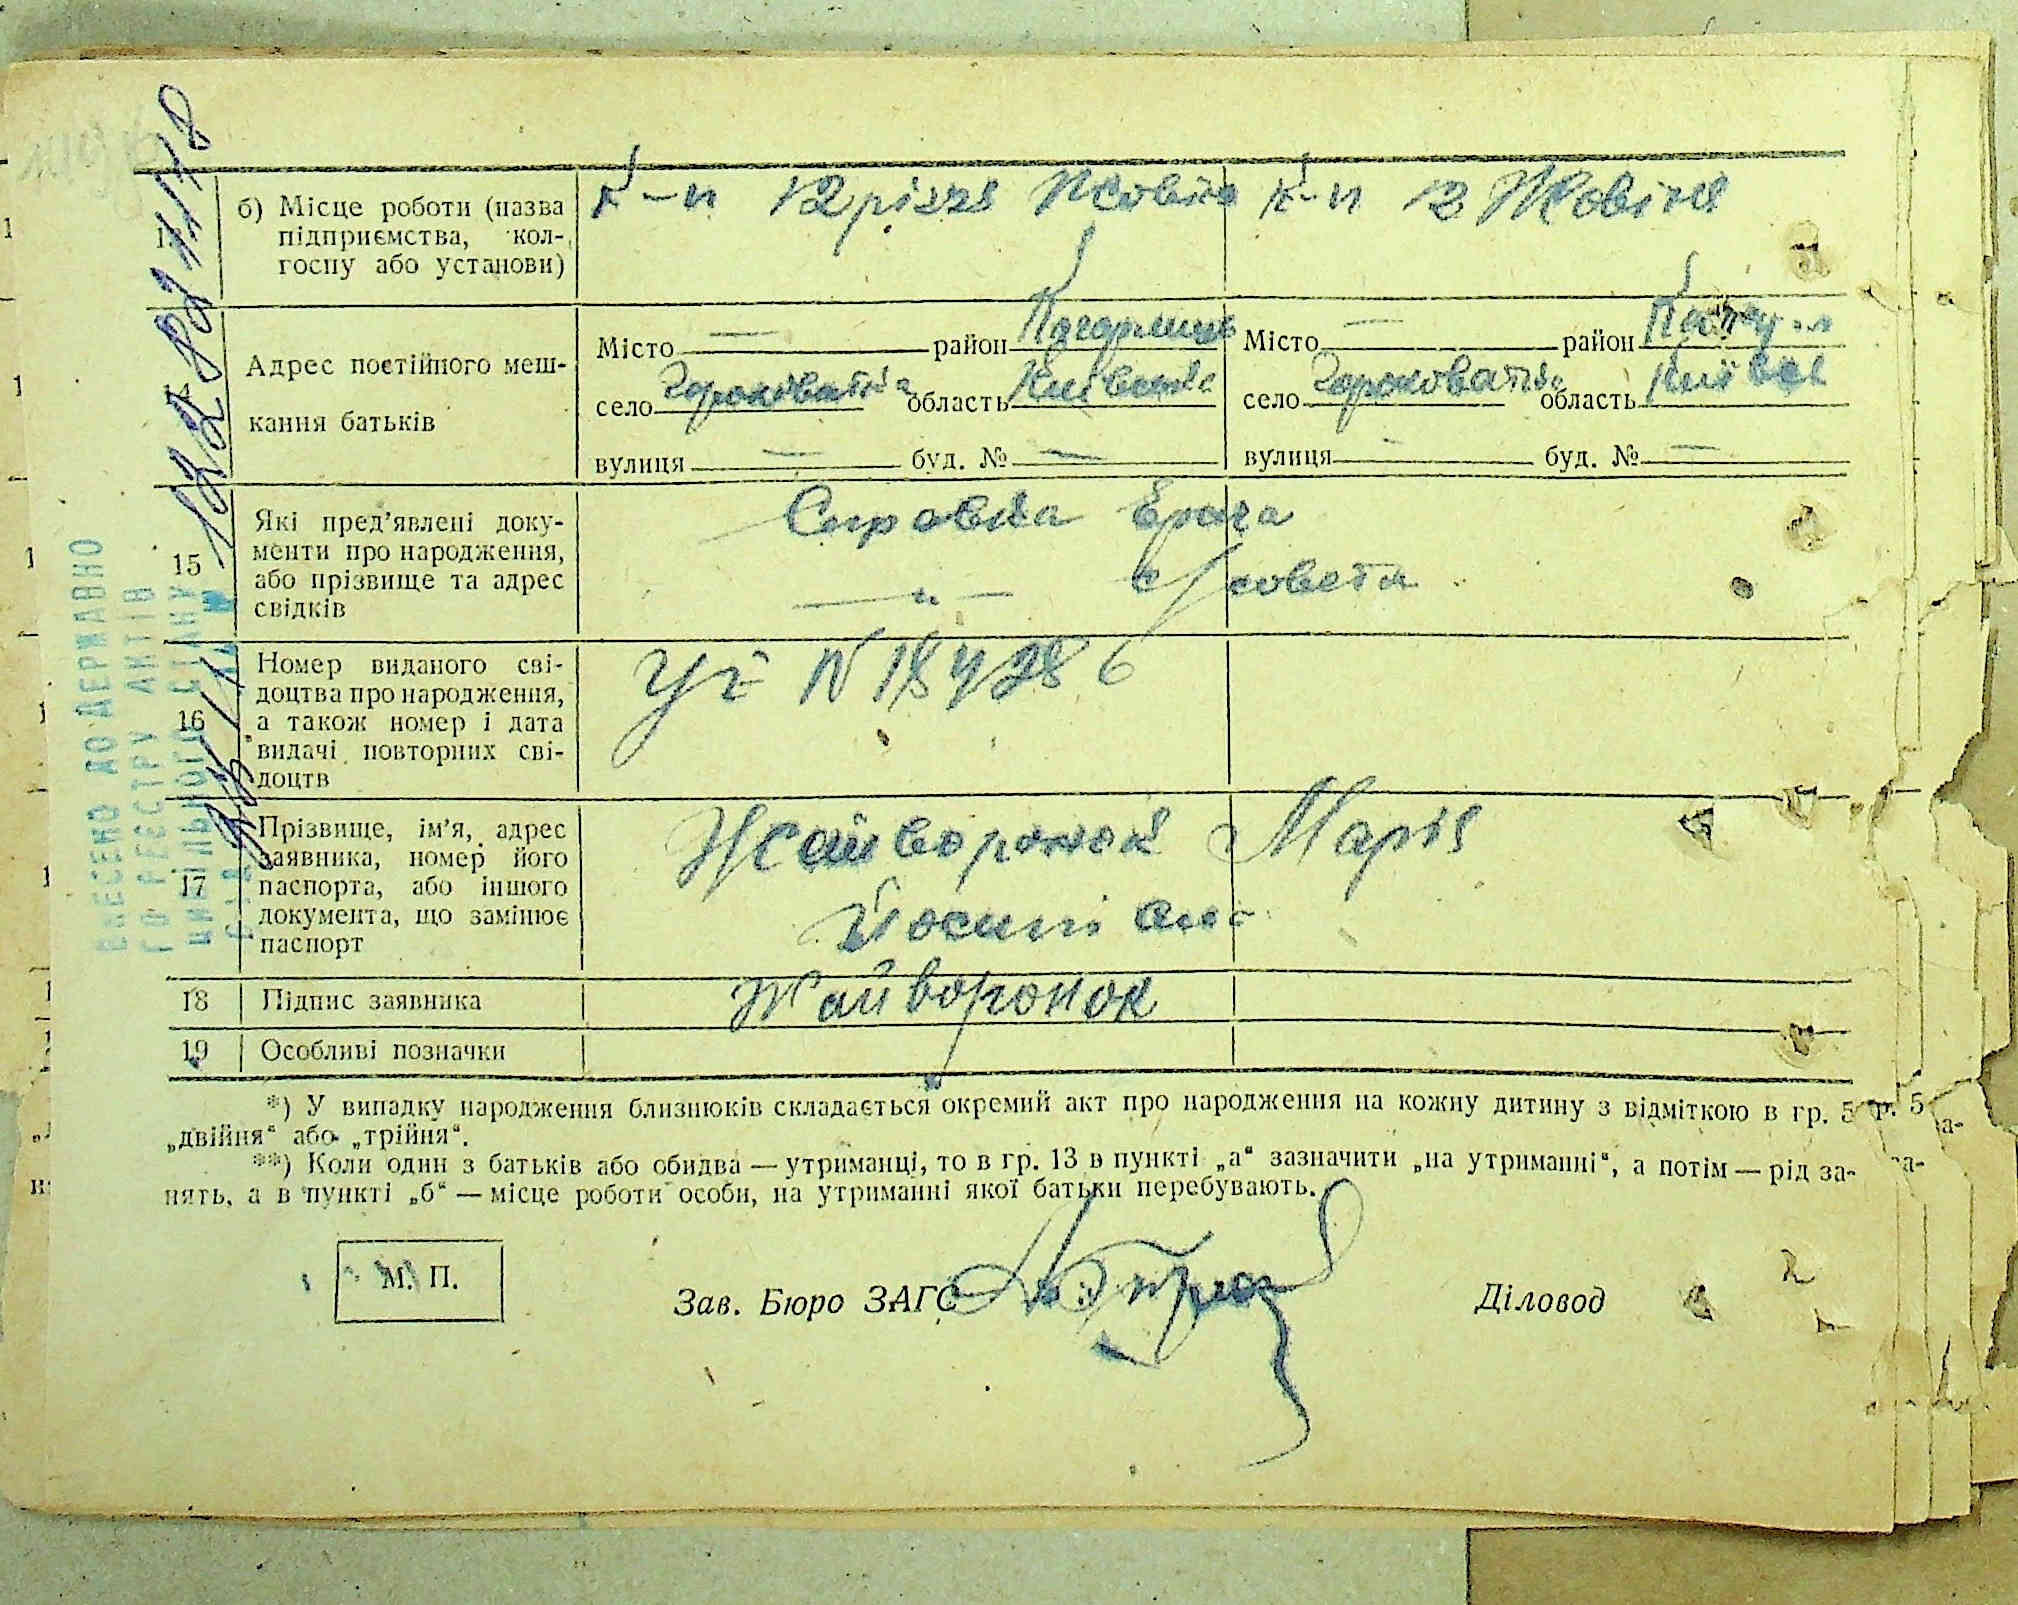 б) Місце роботи (назва
підприємства, кол-
госпу або установи)
к-п 12 річчя Жовтня
к-п 12 Жовтня
Адрес постійного меш-
кання батьків
Місто — район Кагарлицьк
село Горохуватка область Київська
вулиця — буд. № —
Місто — район
село Горохуватка область Київськ
вулиця — буд. № —
15
Які пред’явлені доку-
менти про народження,
або прізвище та адрес
свідків
Справка Врача
— „ — с/совета
16
Номер виданого сві-
доцтва про народження,
а також номер і дата
видачі повторних сві-
доцтв
N 184286
17
Прізвище, ім’я, адрес
заявника, номер його
паспорта, або іншого
документа, що замінює
паспорт
Жайворонок Марія
Йосипівна
18
Підпис заявника
Жайворонок
19
Особливі позначки
ВНЕСЕНО ДО ДЕРЖАВНО
ГО РЕЄСТРУ АКТІВ
ЦИВІЛЬНОГО СТАНУ
*) У випадку народження близнюків складається окремий акт про народження на кожну дитину з відміткою в гр. 5
„двійня“ або „трійня“.
**) Коли один з батьків або обидва — утриманці, то в гр. 13 в пункті „а“ зазначити „на утриманні“, а потім — рід за-
нять, а в пункті „б“ — місце роботи особи, на утриманні якої батьки перебувають.
М. П.
Зав. Бюро ЗАГС
Діловод